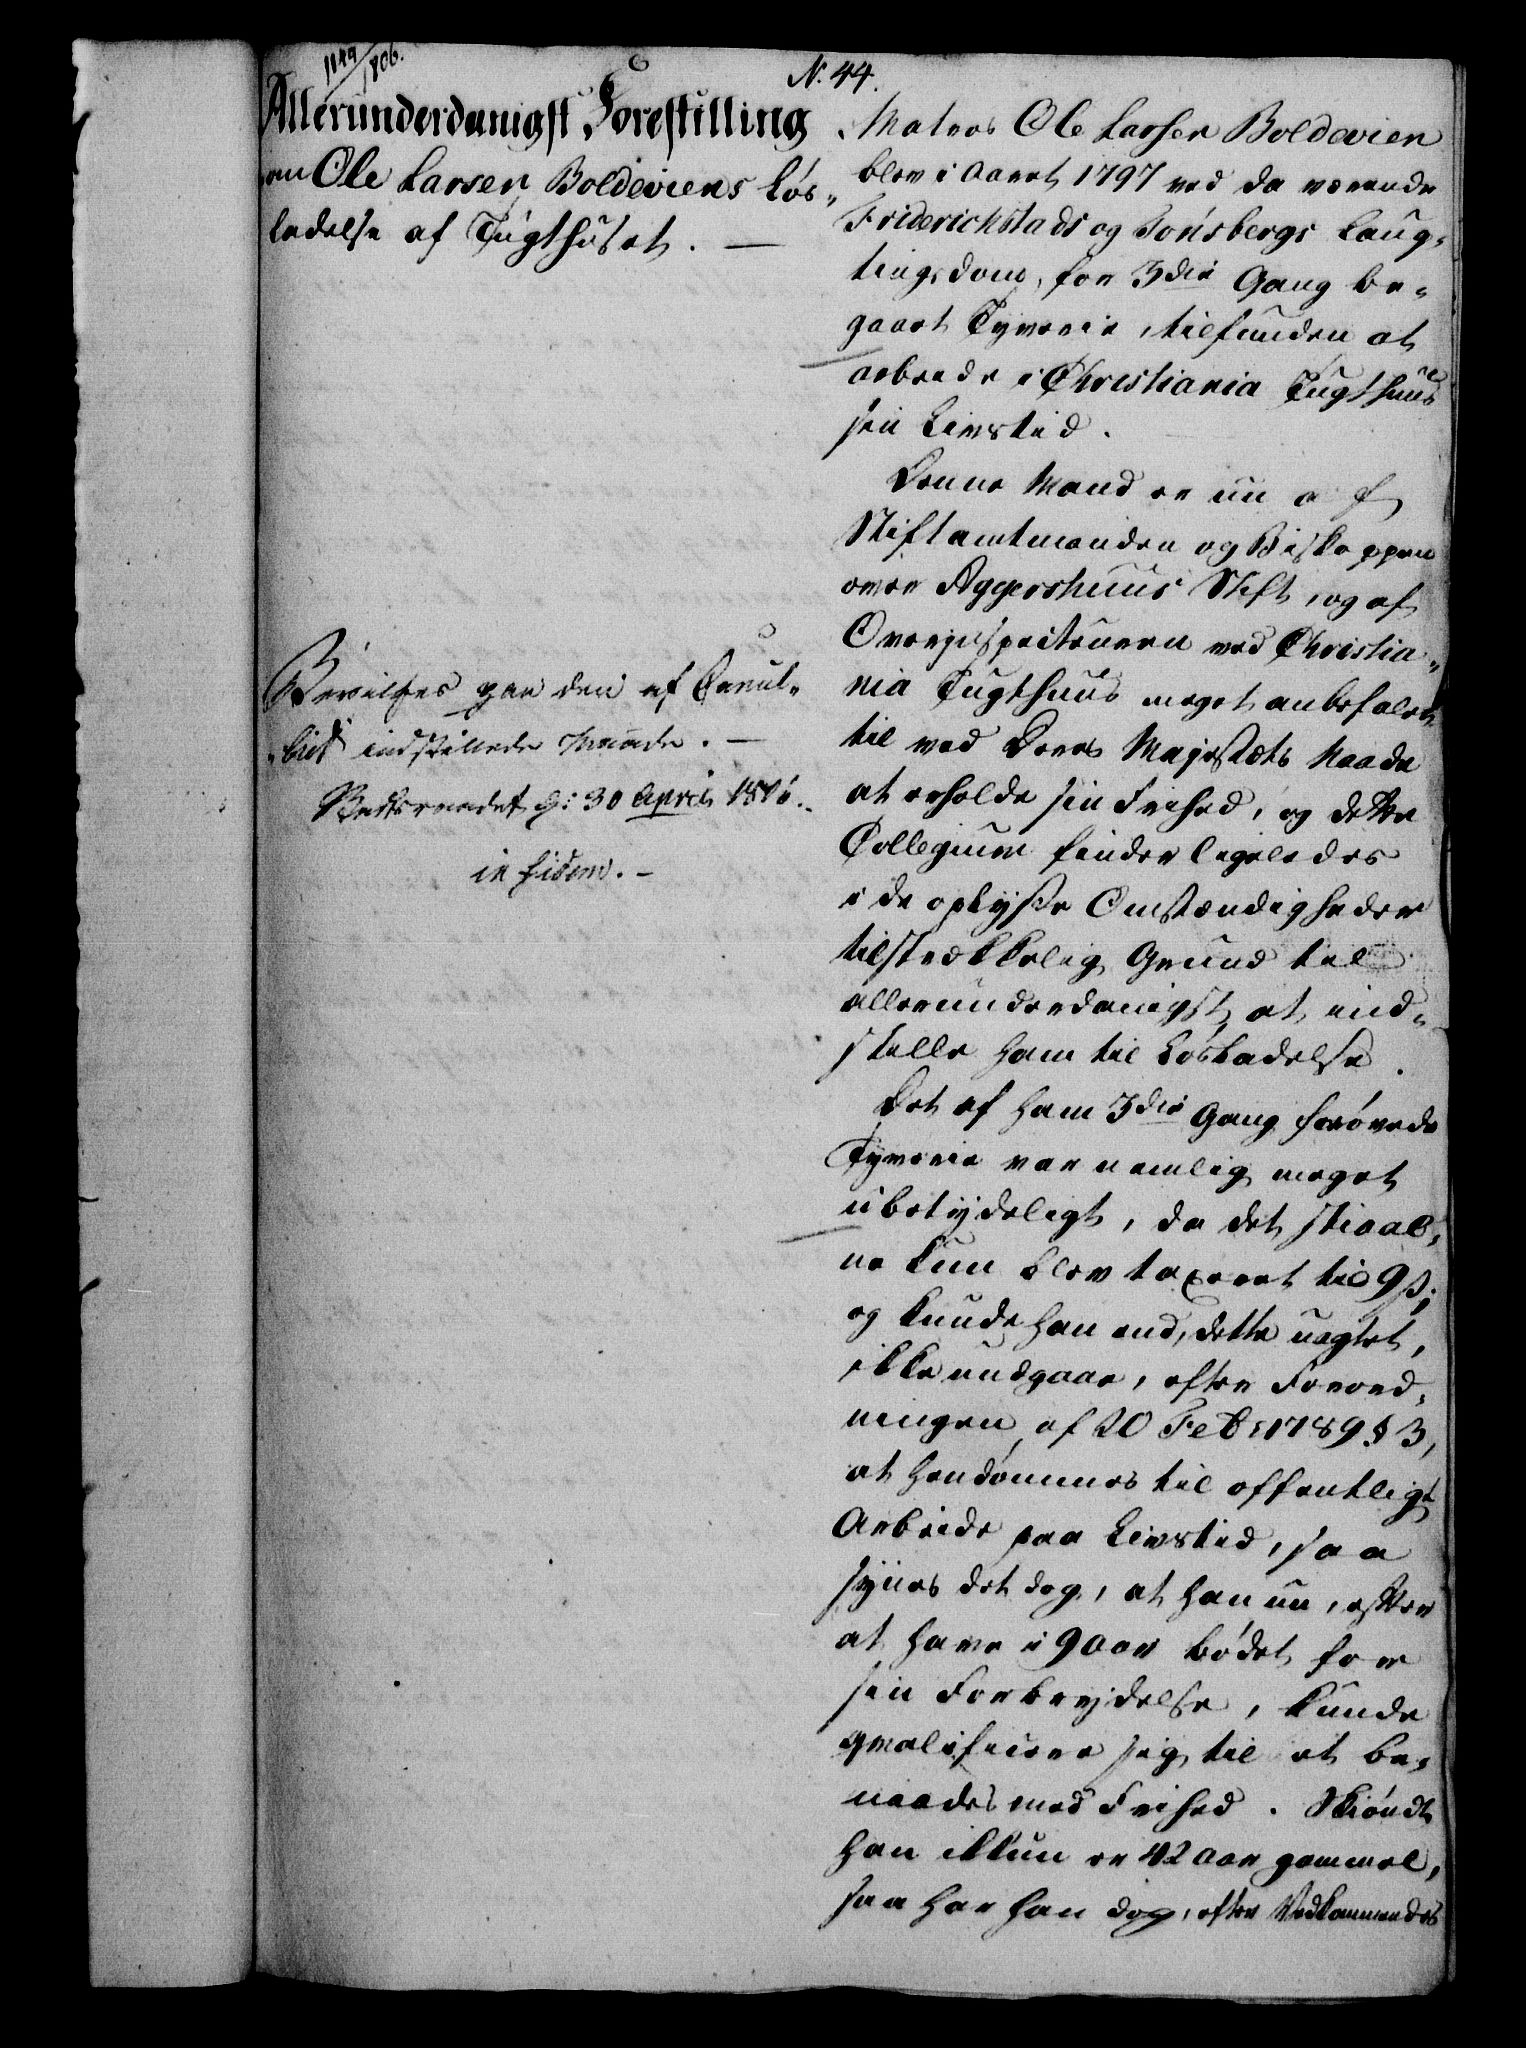 1149/806.
N. 44.
Allerunderdanigst Forestilling
om Ole Larsen Boldeviens Løs-
ladelse af Tugthuset. —
Bevilges paa den af Cancel-
liet indstillede Maade. —
d: 30 April 1806.
in fidem. —
Matros Ole Larsen Boldevien
blev i Aaret 1797 ved da værende
Friderichstads og Tønsbergs Laug-
tingsdom, for 3die Gang be-
gaaet Tyverie, tilfunden at
arbeide i Christiania Tugthuus
sin Livstid.
Denne Mand er nu af
Stiftamtmanden og Biskoppen
over Aggershuus Stift, og af
Overinspecteuren ved Christia-
nia Tugthuus meget anbefalet
til ved Deres Majestæts Naade
at erholde sin Frihed, og dette
Collegium finder ligeledes
i de oplyste Omstændigheder
tilstrækkelig Grund til
allerunderdanigst at ind-
stille ham til Løsladelse.
Det af ham 3die Gang forøvede
Tyverie var nemlig meget
ubetydeligt, da det stiaal-
ne kun blev taxeret til 9 ß;
og kunde han end, dette uagtet,
ikke undgaae, efter Forord-
ningen af 20 Febr 1789 § 3,
at hendømmes til offentligt
Arbeide paa Livstid, saa
synes det dog, at han nu, efter
at have i 9 Aar bødet for
sin Forbrydelse, kunde
qvalificere sig til at be-
naades med Frihed. Skiøndt
han ikkun er 42 Aar gammel,
saa har han dog, efter Vedkommendes